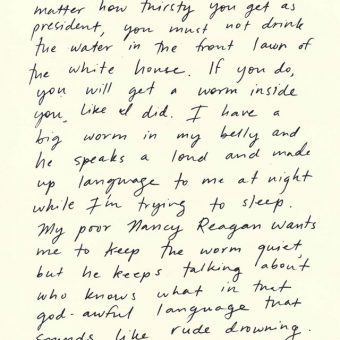 matter how thirsty you get as
president, you must not drink
the water in the front lawn of
the white house. If you do,
you will get a worm inside
you, like I did. I have a
big worm in my belly and
he speaks a loud and made
up language to me at night
while I'm trying to sleep.
My poor Nancy Reagan wants
me to keep the worm quiet,
but he keeps talking about
who knows what in that
god-awful language that
sounds like rude drowning.